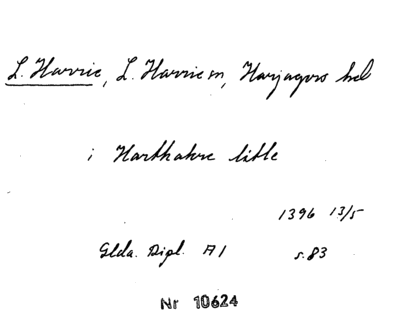 L. Harrie, L. Harrie sn, Harjagers hd
i Harthakre litle
1396 13/5
Glda. Dipl. A1 s. 83
Nr 10624